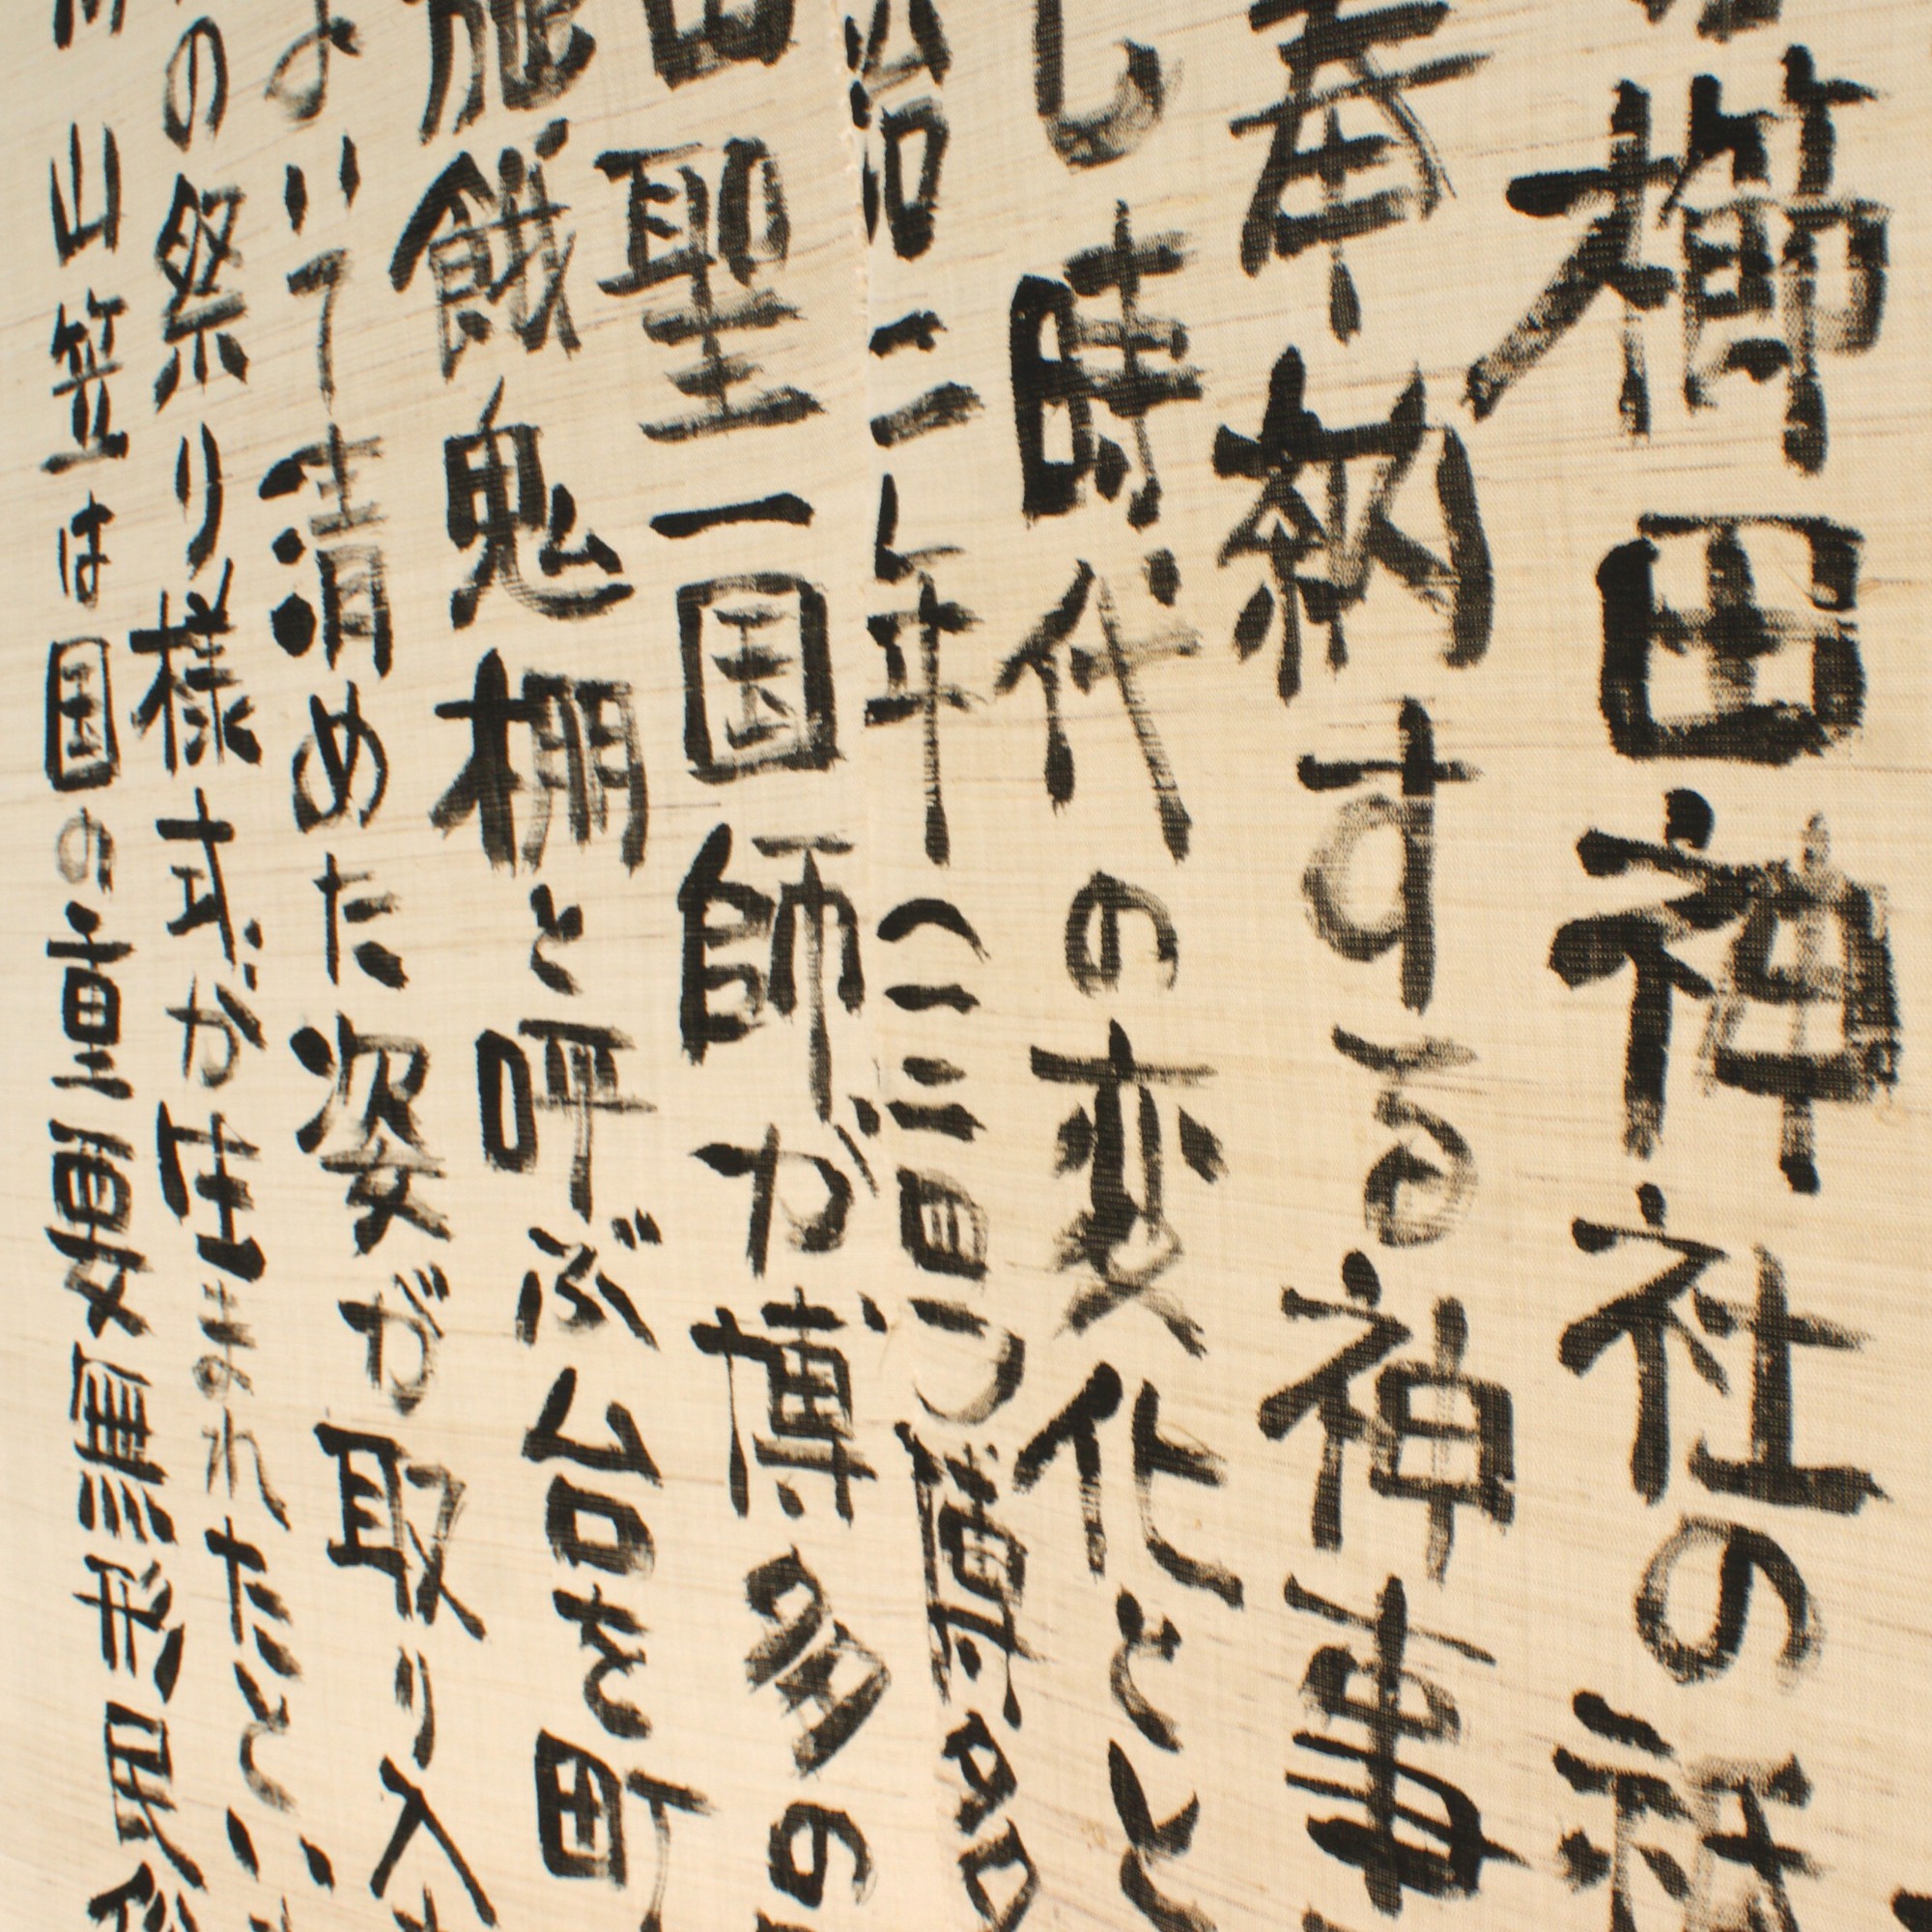 櫛田神社の祇
奉納する神事
し時代の変化とと
治二年(一二四一)博多
聖一国師が博多の
施餓鬼棚と呼ぶ台を町
よいて清めた姿が取り入
の祭り様式が生まれたとい
山笠は国の重要無形民俗